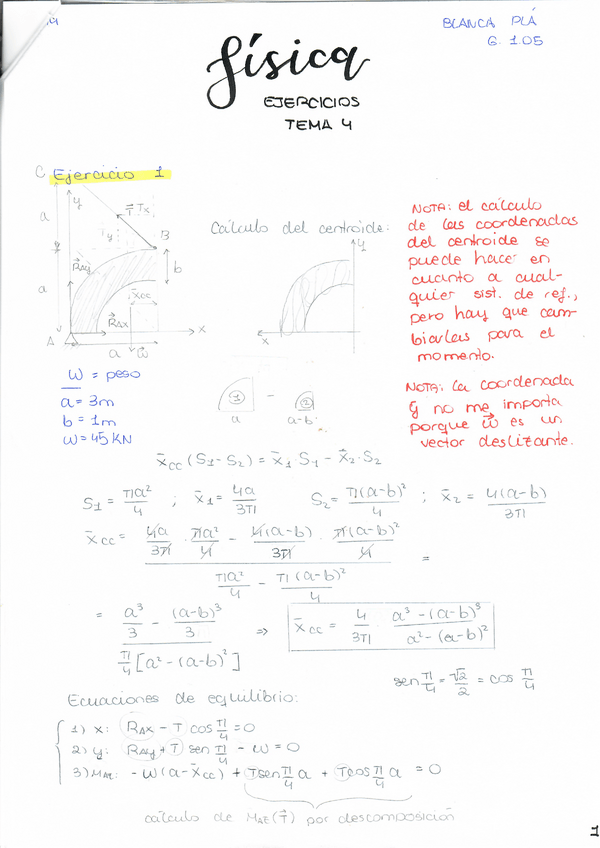 BLANCA PLÁ
G. 105
física
EJERCICIOS
TEMA 4
Ejercicio 1
C
a
y
T Tx
Ty
B
RAy
b
a
x̄cc
RAx
A
x
a
w⃗
w = peso
a = 3m
b = 1m
w = 45 KN
Cálculo del centroide:
y
x
1
a
-
2
a-b
NOTA: el cálculo
de las coordenadas
del centroide se
puede hacer en
cuanto a cual-
quier sist. de ref.,
pero hay que cam
biarlas para el
momento.
NOTA: la coordenada
ȳ no me importa
porque w⃗ es un
vector deslizante.
x̄cc (S1 - S2) = x̄1 · S1 - x̄2 · S2
S1 = πa²/4 ; x̄1 = 4a/3π S2 = π(a-b)²/4 ; x̄2 = 4(a-b)/3π
x̄cc = (4a/3π · πa²/4 - 4(a-b)/3π · π(a-b)²/4) / (πa²/4 - π(a-b)²/4) =
= (a³/3 - (a-b)³/3) / (π/4 [a² - (a-b)²]) => x̄cc = 4/3π · (a³ - (a-b)³)/(a² - (a-b)²)
sen π/4 = √2/2 = cos π/4
Ecuaciones de equilibrio:
1) x: RAx - T cos π/4 = 0
2) y: RAy + T sen π/4 - w = 0
3) MAz: - w(a - x̄cc) + T sen π/4 a + T cos π/4 a = 0
cálculo de MAz(T⃗) por descomposición
1